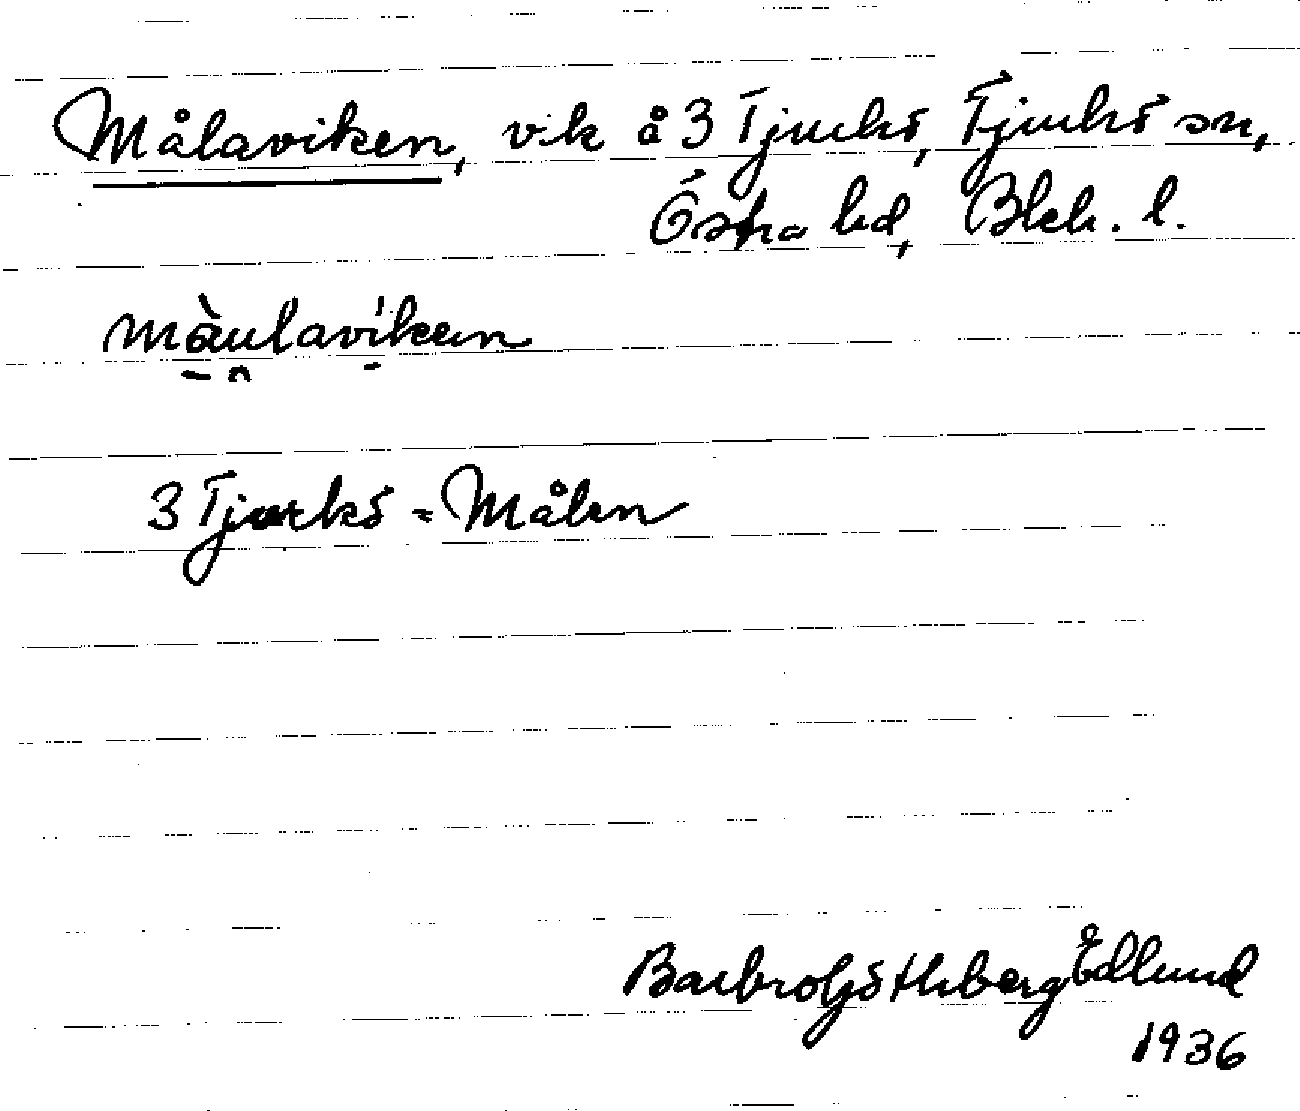 Målaviken, vik å 3 Tjurkö, Tjurkö sn,
Östra hd, Blek. l.
màulavikeen
3 Tjurkö = Målen
Barbro Göthberg Edlund
1936